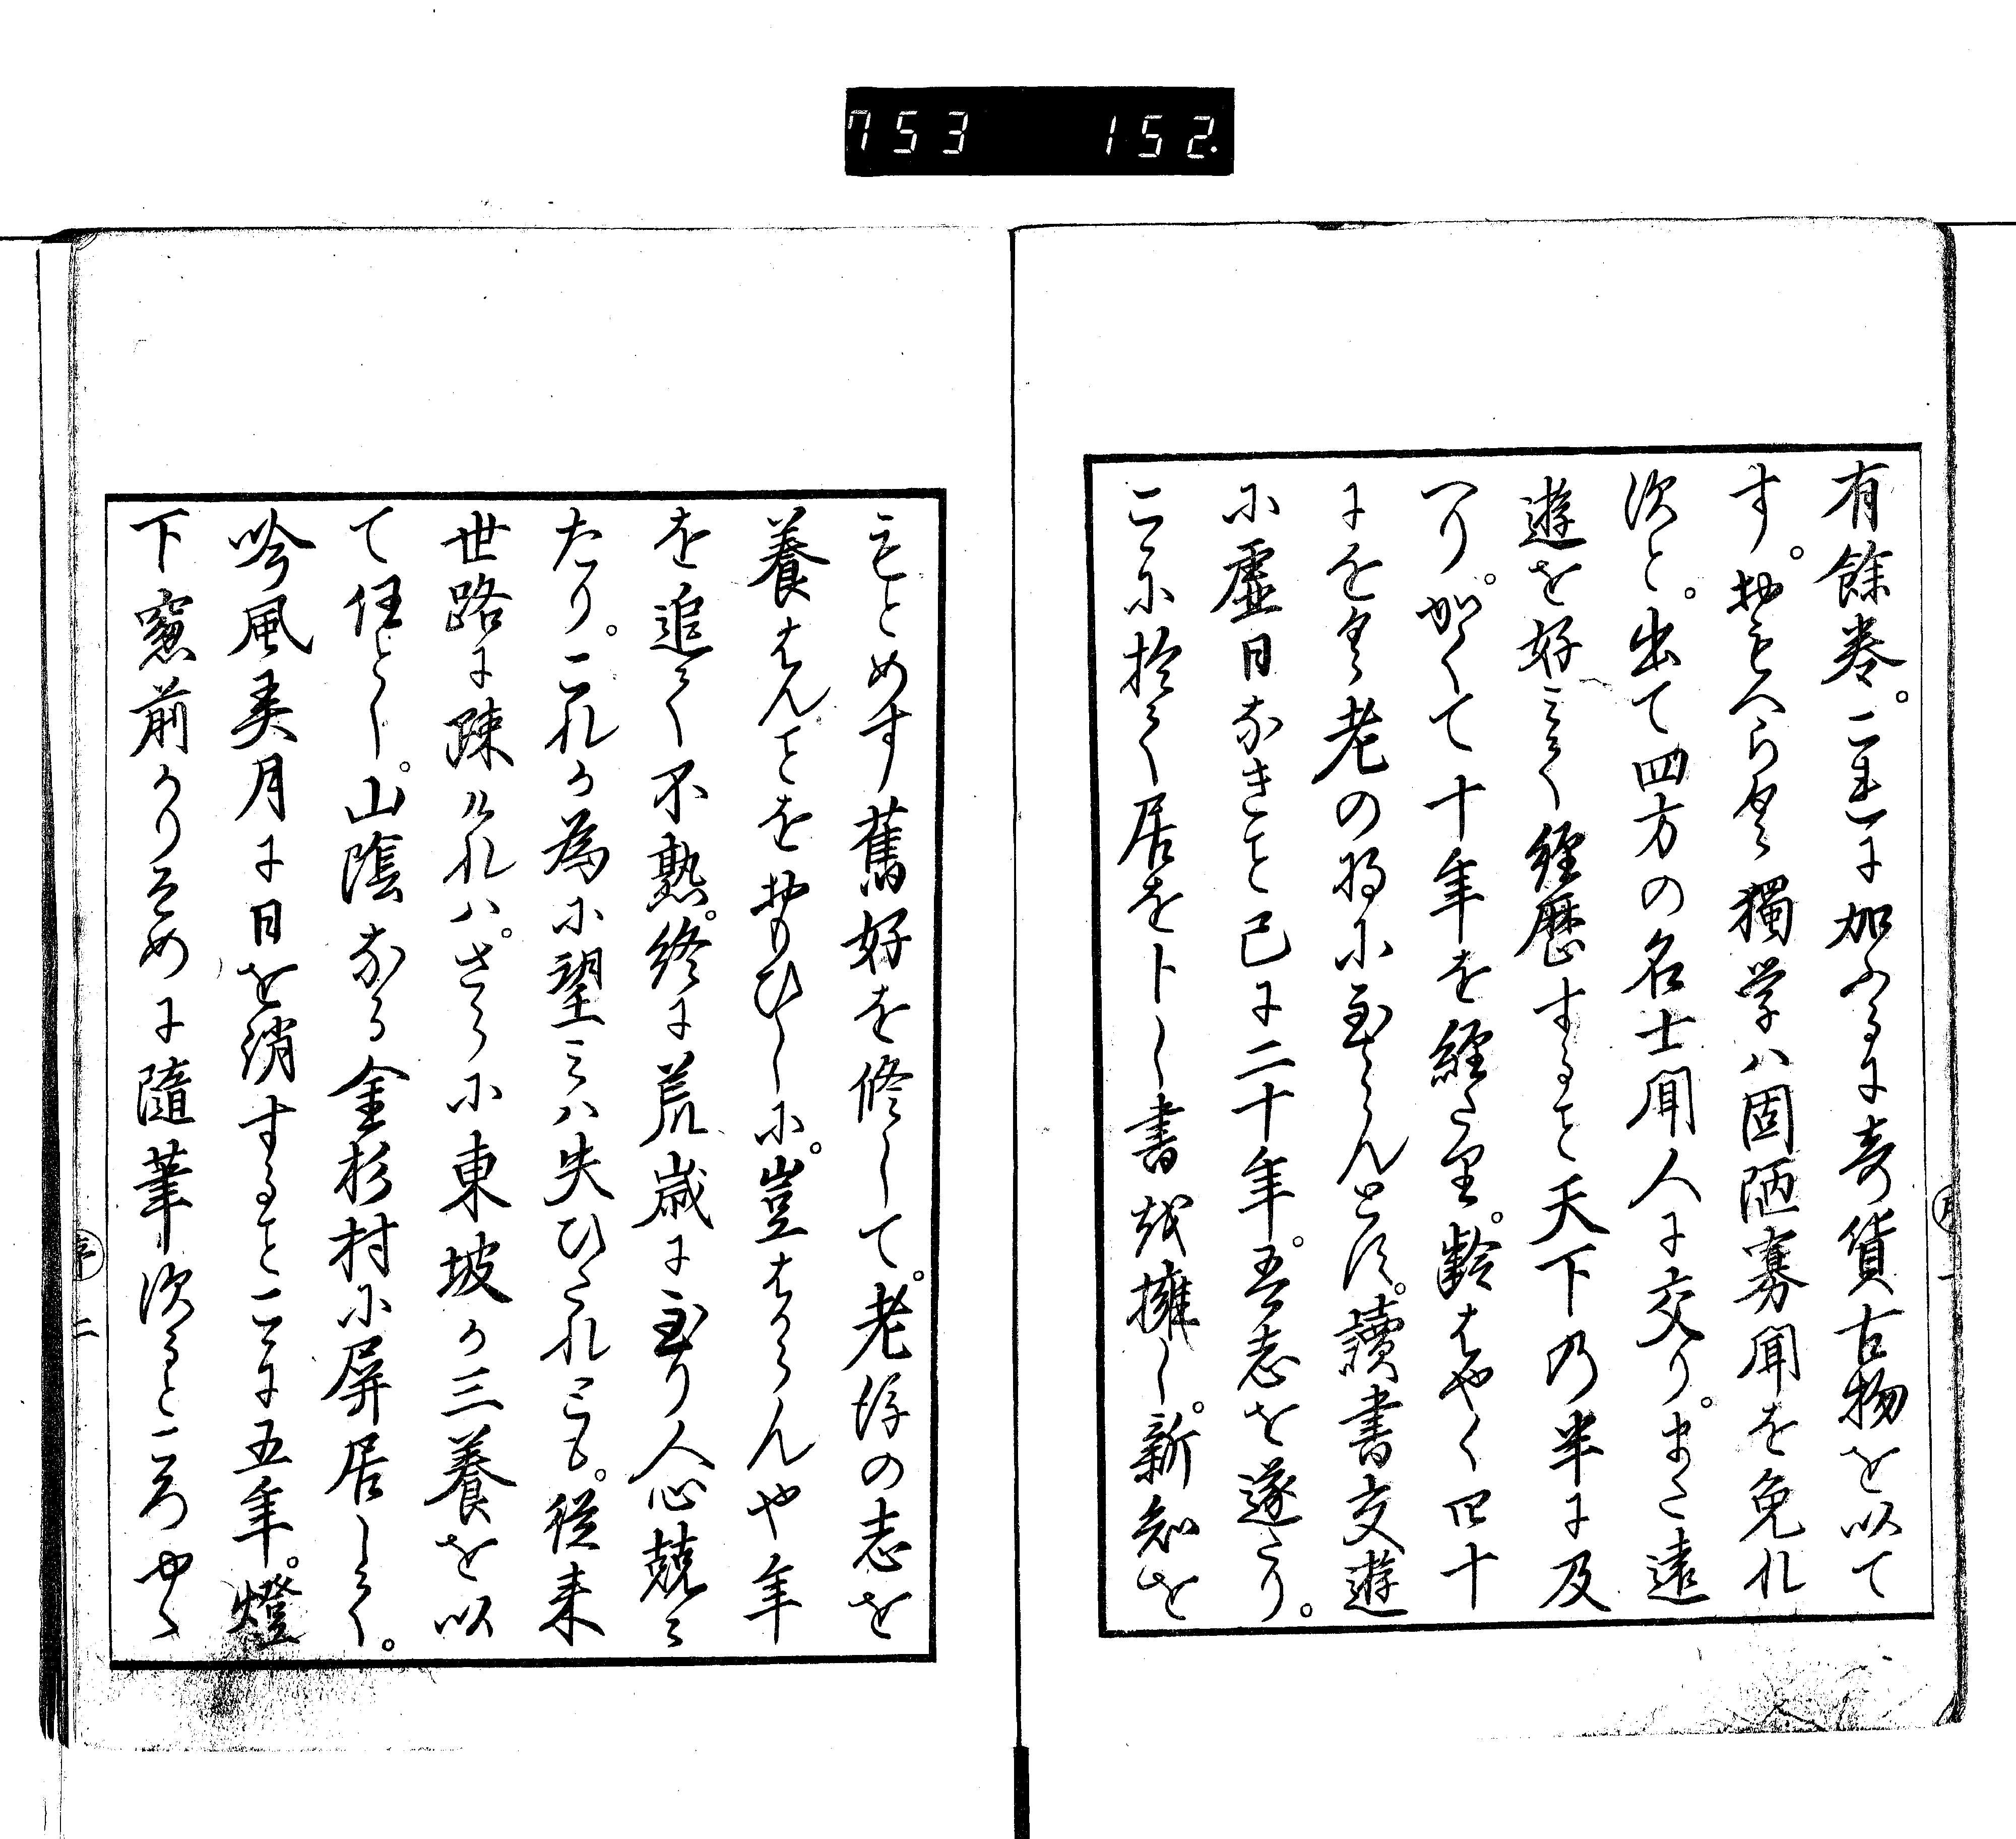 753 152.
有餘巻。これに加ふるに奇貨古物を以て
す。おもへらく獨学ハ固陋寡聞を免れ
次と。出て四方の名士聞人に交り。また遠
遊を好ミて経歴すること天下乃半に及
へり。かくて十年を経たり。齢はやく四十
になん〳〵老の將に至らんとす。讀書交遊
に虚日なきこと已に二十年。吾志を遂たり。
こゝに於て居を卜し書を擁し。新知を
もとめす舊好を修して。老後の志を
養はんことをおもひしに。豈はからんや年
を追て不熟。終に荒歳に至り人心兢々
たり。これか為に望ミハ失ひたれとも。従来
世路に疎けれハ。さらに東坡か三養を以
て任とし。山陰なる金杉村に屏居して。
吟風弄月に日を消すること こゝに五年。燈
下窓前かりそめに隨筆次るところやゝ
序 二